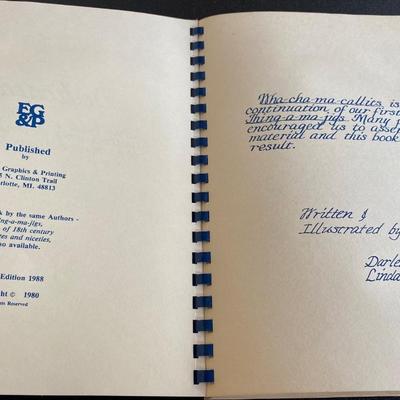 EG
&P
Published
by
Graphics & Printing
5 N. Clinton Trail
rlotte, MI. 48813
k by the same Authors -
ng-a-ma-jigs,
of 18th century
es and niceties,
o available.
Edition 1988
ght © 1980
ts Reserved
Wha-cha-ma-callits is
continuation of our first
Thing-a-ma-jigs Many p
encouraged us to asse
material and this book
result.
Written &
Illustrated by
Darle
Linda